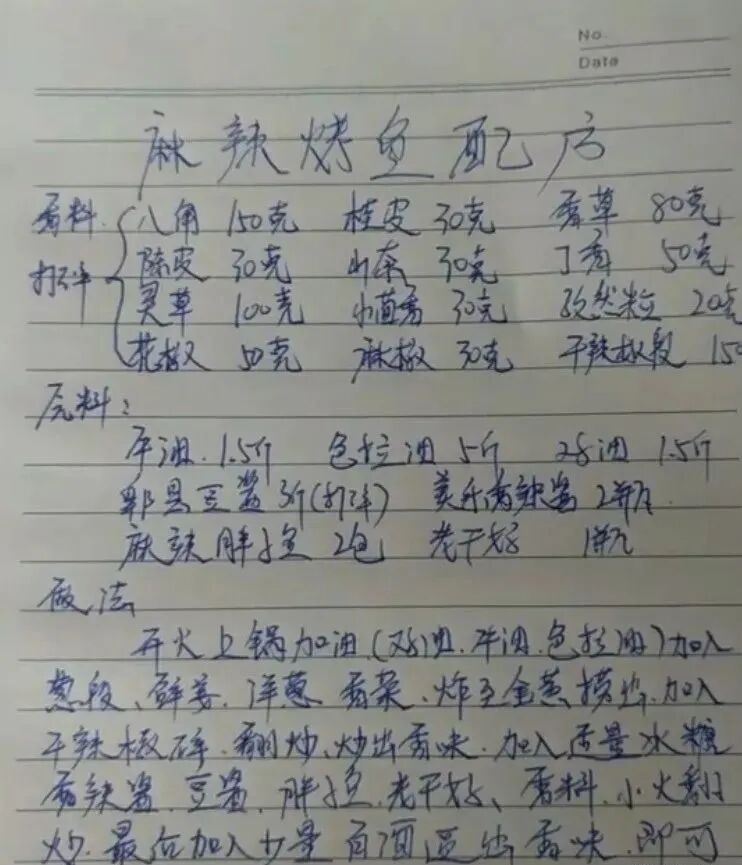 No.
Date
麻辣烤鱼配方
香料 八角 150克 桂皮 30克 香草 80克
打碎 陈皮 30克 山奈 30克 丁香 50克
灵草 100克 小茴香 30克 孜然粒 20克
花椒 50克 麻椒 30克 干辣椒段 150
原料:
牛油 1.5斤 色拉油 5斤 鸡油 1.5斤
郫县豆酱 3斤(打碎) 美乐香辣酱 2瓶
麻辣胖子鱼 2包 老干妈 1瓶
做法
开火上锅加油(鸡油、牛油、色拉油)加入
葱段、鲜姜、洋葱 香菜、炸至金黄捞出、加入
干辣椒碎、翻炒、炒出香味、加入适量冰糖
香辣酱、豆酱、胖子鱼、老干妈、香料、小火翻
炒、最后加入少量 逼出香味、即可